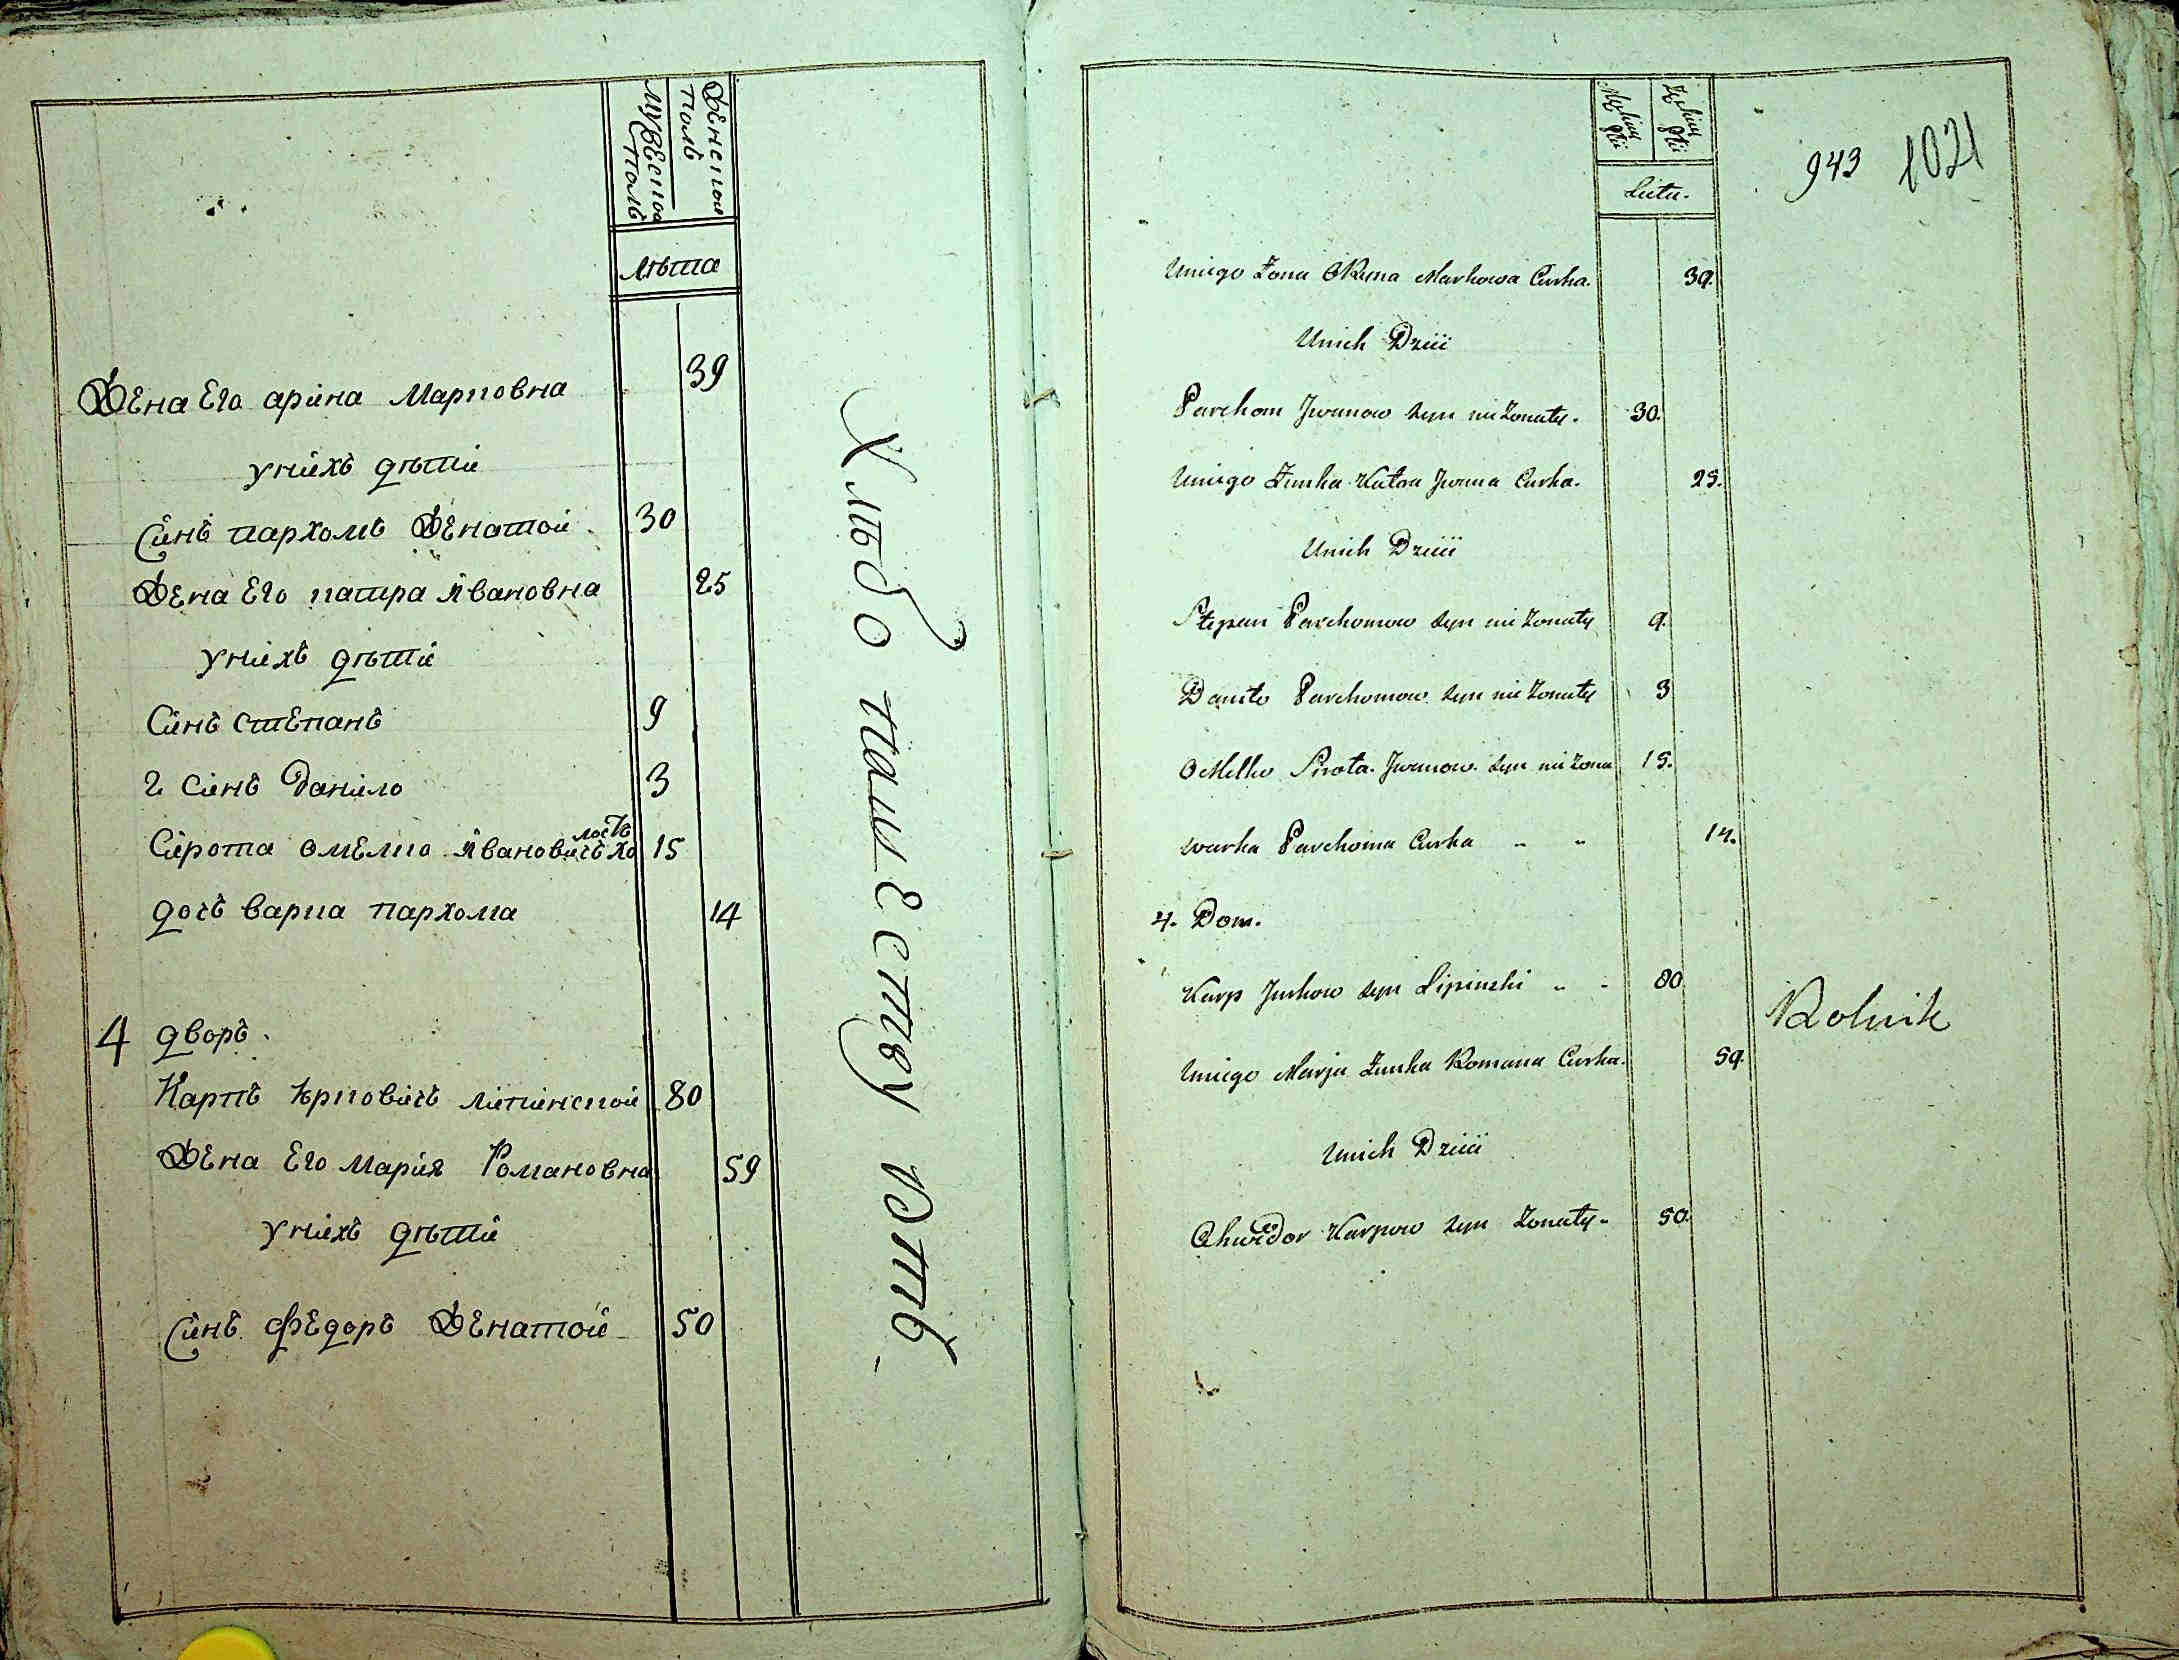 Женской
полъ
мужеской
полъ
лѣта
Жена Его арина Марковна 39
униxъ дѣти
Синъ пархомъ Женатой 30
Жена Его катра ивановна 25
униxъ дѣти
Синъ стЕпанъ 9
2 синъ данило 3
Сирота омЕлко ивановичъ холостъ 15
дочъ варка пархома 14
4 дворъ
Карпъ юрковичъ липинской 80
Жена Его Мария Романовна 59
униxъ дѣти
Синъ фЕдоръ Женатой 50
Хлѣбо пашЕству Ютъ
943 1021
Męskiey Płci
Żeńskiey Płci
Lita.
Uniego Żona Marhowa Curka. 39.
Unich Dziti
Parchom Jwanow syn nieżonaty. 30.
Uniego Żunka Katra Jwana Curka. 25.
Unich Dziti
Stepan Parchomow syn nieżonaty 9.
Daniło Parchomow syn nieżonaty 3
Omelko Sirota Jwanow syn nieżona 15.
warka Parchoma Curka " " 14.
4. Dom.
Karp Jurkow syn Lipinski " " 80
Uniego Marja Żunka Romana Curka. 59.
Unich Dziti
Chwedor Karpow syn Żonaty. 50.
Rolnik